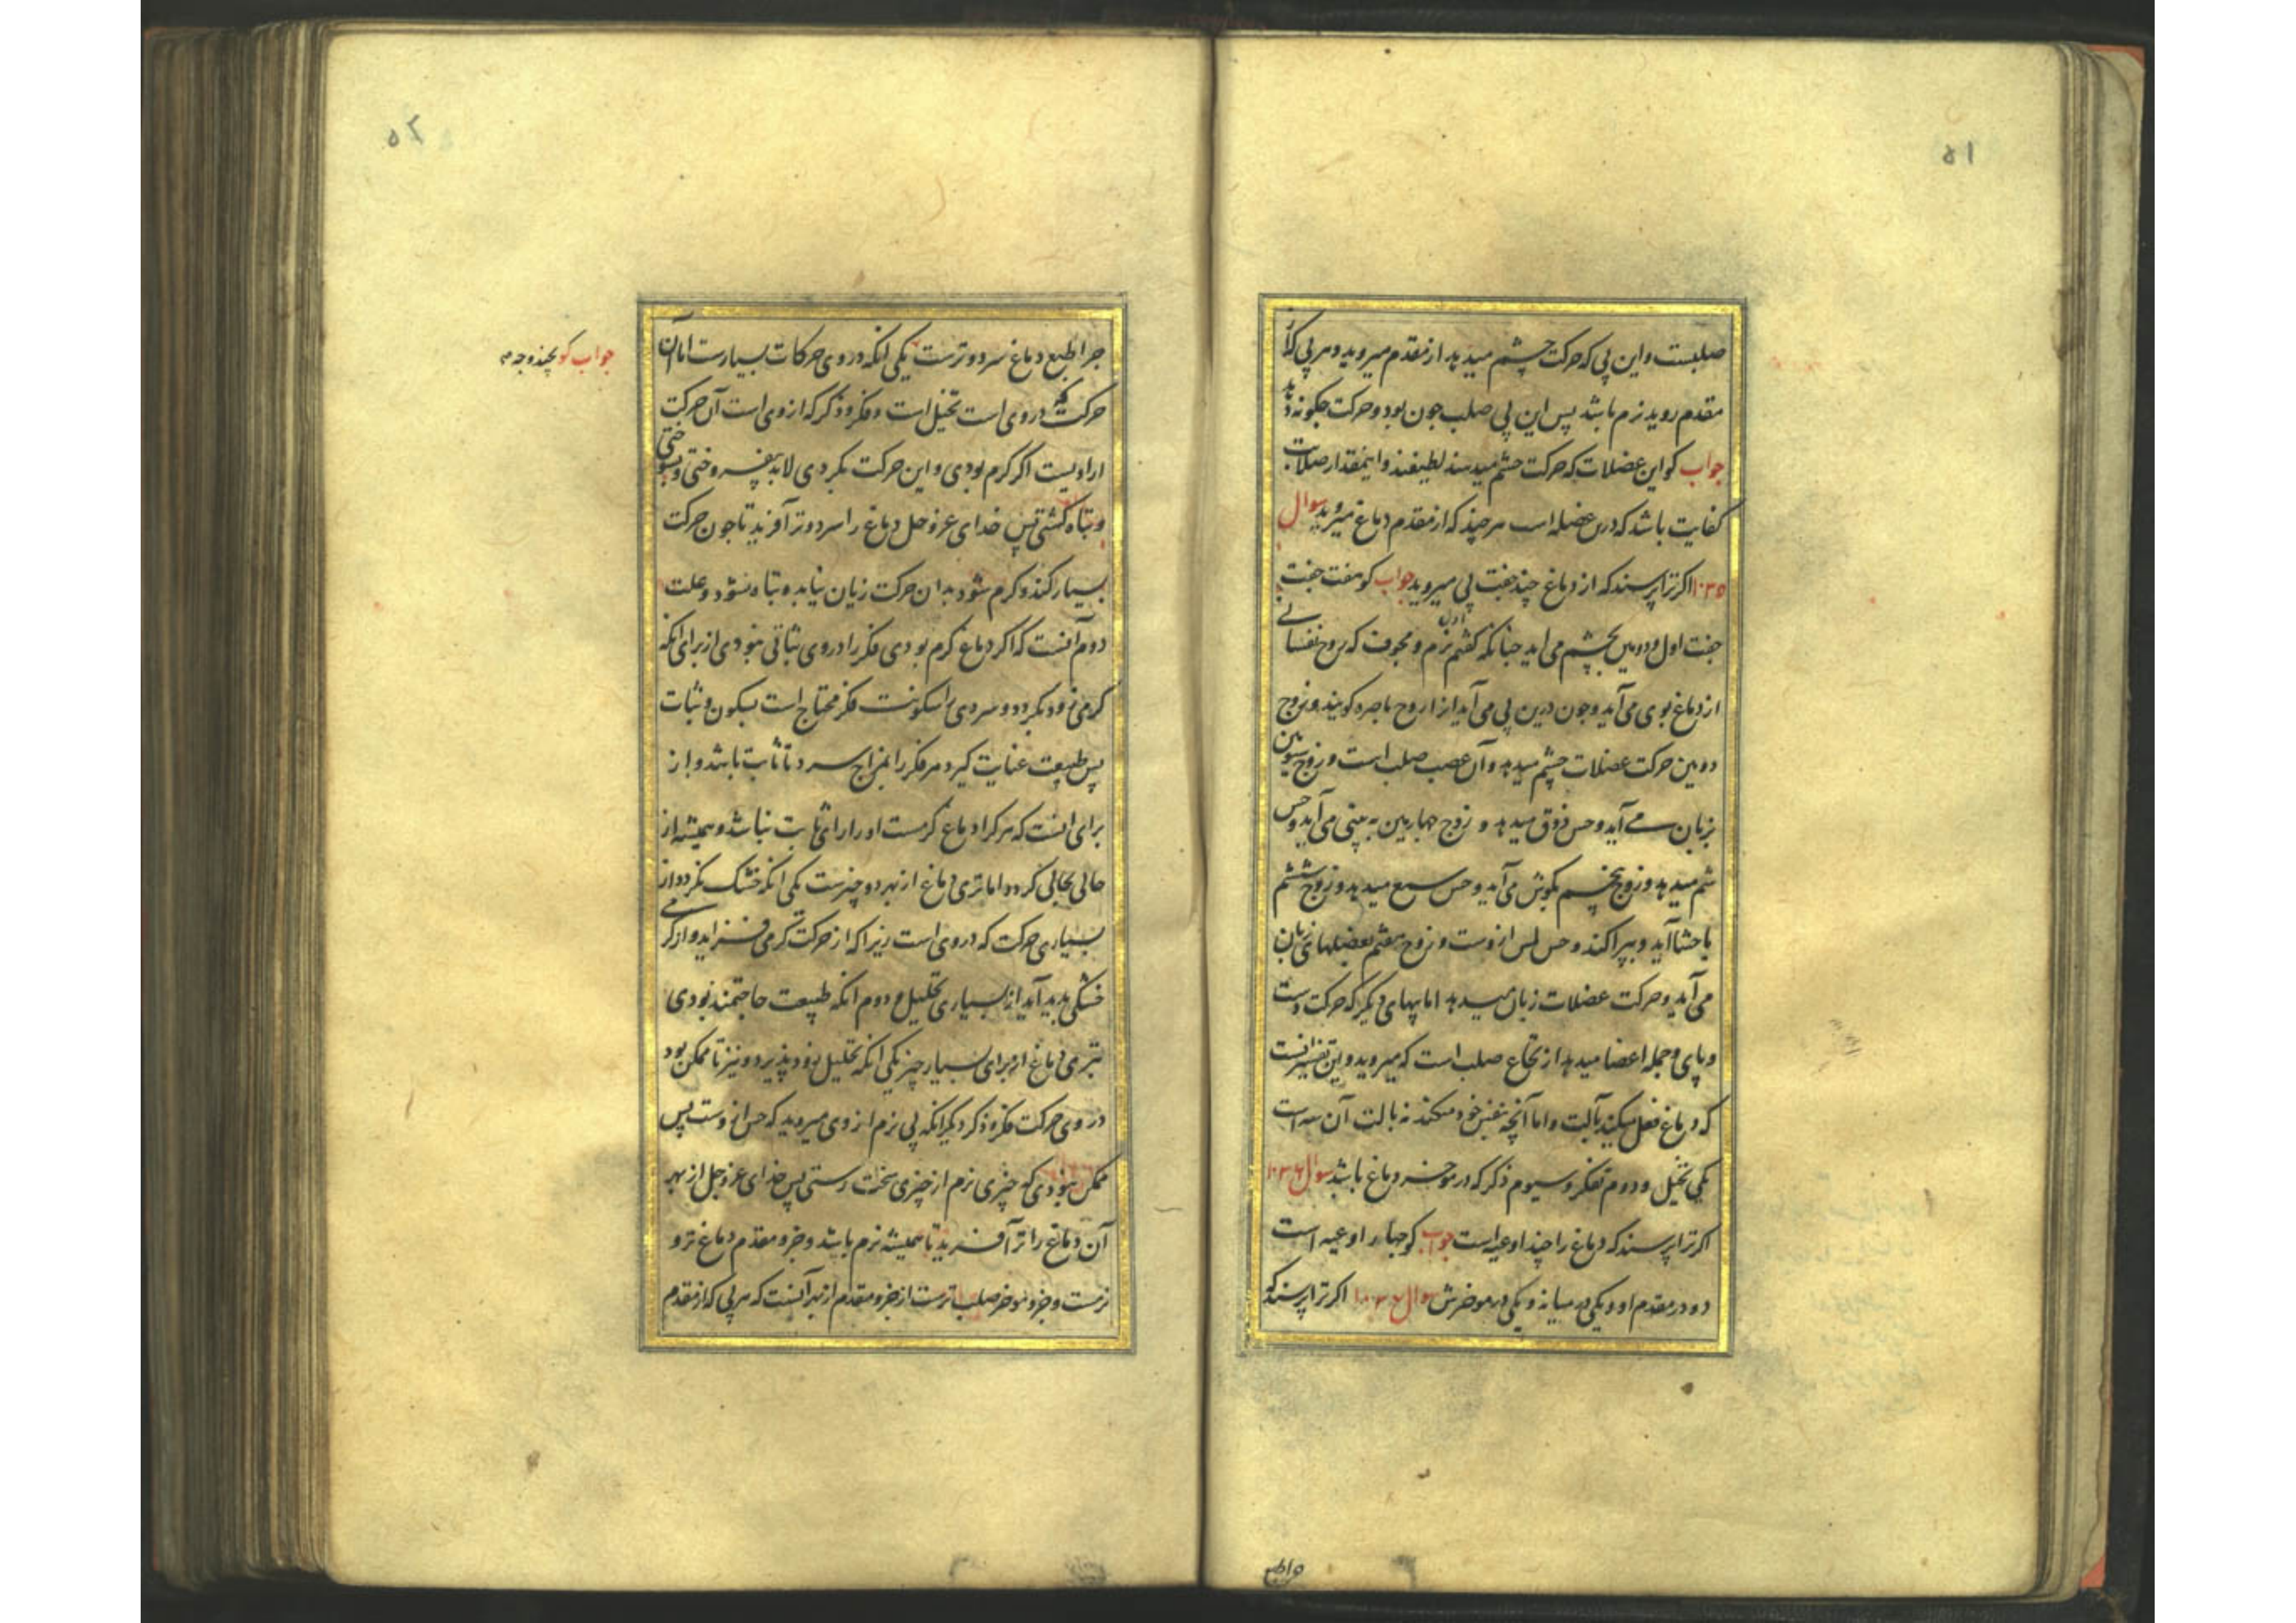 ۵۱
صلبست و این پی که حرکت چشم میدهد از مقدم میروید و هر پی که از
مقدم روید نرم باشد پس این پی صلب جون بود و حرکت جکونه دهد
جواب کو این عضلات که حرکت چشم میدهند لطیفند و اینمقدار صلابت
کفایت باشد که درین عضله است هر چند که از مقدم دماغ میروید سوال
۱۰۳۵ اکر ترا پرسند که از دماغ چند جفت پی میروید جواب کو هفت جفت
جفت اول و دومین بچشم می آید جنانکه کفتم اول نرم و مجوف که روح نفسانی
از دماغ بوی می آید و جون درین پی می آید انرا روح باصره کویند و زوج
دومین حرکت عضلات چشم میدهد و آن عصب صلب است و زوج سیومین
بزبان می آید و حس ذوق میدهد و زوج جهارمین به بینی می آید و حس
شم میدهد و زوج پنجم بکوش می آید و حس سمع میدهد و زوج ششم
باحشا آید و بپراکند و حس لمس ازوست و زوج هفتم بعضلهای زبان
می آید و حرکت عضلات زبان میدهد اما پیهای دیکر که حرکت دست
و پای و جمله اعضا میدهد از نخاع صلب است که میروید و این تفسیر آنست
که دماغ فعل میکند بآلت و اما آنچه بنفس خود میکند نه بالت آن سه است
یکی تخیل و دوم تفکر و سیوم ذکر که در موخر دماغ باشد سوال ۱۰۳۶
اکر ترا پرسند که دماغ را چند اوعیه است جواب کو جهار اوعیه است
دو در مقدم او و یکی در میانه و یکی در موخرش سوال ۱۰۳۷ اکر ترا پرسند که
جرا طبع
۵۲
جرا طبع دماغ سرد و ترست یکی انکه در وی حرکات بسیارست اما آن
جواب کو بچند وجه
حرکت که در وی است تخیل است و فکر و ذکر که از وی است آن حرکت
ارادیست اکر کرم بودی و این حرکت بکردی لابد بیفروختی و بسوختی
و تباه کشتی پس خدای عز و جل دماغ را سرد و تر آفرید تا جون حرکت
بسیار کند و کرم شود بدان حرکت زیان نیابد و تباه نشود و علت
دوم آنست که اکر دماغ کرم بودی فکر را در وی ثباتی نبودی از برای انکه
کرمی زود بکردد و سردی را سکونست فکر محتاج است بسکون و ثبات
پس طبیعت عنایت کرد مر فکر را بمزاج سرد تا ثابت باشد و از
برای انست که هر کرا دماغ کرمست او را رای ثابت نباشد و همیشه از
حالی بحالی کردد اما تری دماغ از بهر دو چیزست یکی انکه خشک نکردد از
بسیاری حرکت که در وی است زیرا که از حرکت کرمی فزاید و از کرمی
خشکی پدید آید از بسیاری تحلیل و دوم انکه طبیعت حاجتمند بودی
بتری دماغ از برای بسیار چیز یکی انکه تحلیل زود پذیرد و نیز تا ممکن بود
در وی حرکت فکر و ذکر دیکر انکه پی نرم از وی میروید که حس ازوست پس
ممکن نبودی که چیزی نرم از چیزی سخت رستی پس خدای عز و جل از بهر
آن دماغ را تر آفرید تا همیشه نرم باشد و جزو مقدم دماغ تر و
نرمست و جزو موخر صلب ترست از جزو مقدم از بهر آنست که هر پی که از مقدم